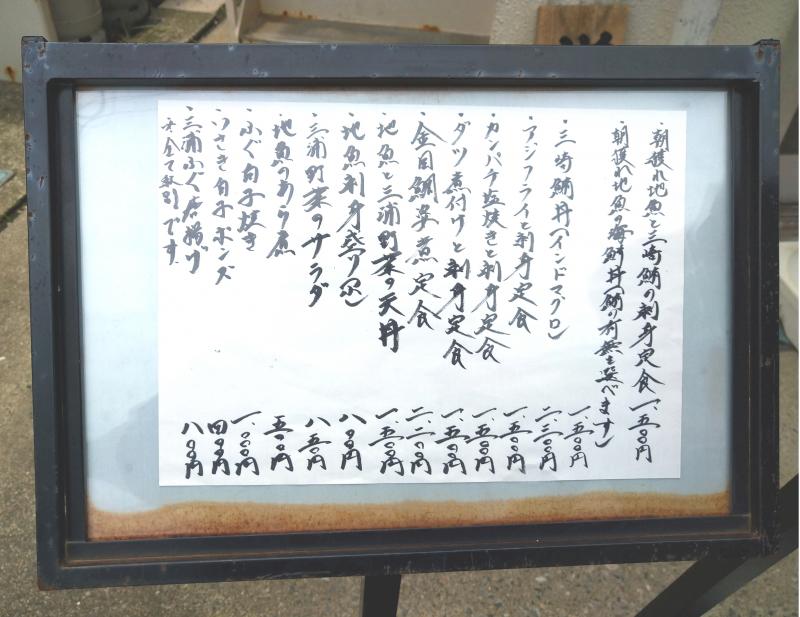 ・朝獲れ地魚と三崎鮪の刺身定食 一、五〇〇円
・朝獲れ地魚の海鮮丼(鮪の有無も選べます) 一、五〇〇円
・三崎鮪丼(インドマグロ) 二、三〇〇円
・アジフライと刺身定食 一、五〇〇円
・カンパチ塩焼きと刺身定食 一、五〇〇円
・ダツ煮付けと刺身定食 一、五〇〇円
・金目鯛姿煮定食 二、二〇〇円
・地魚と三浦野菜の天丼 一、五〇〇円
・地魚刺身盛り 八〇〇円
・三浦野菜のサラダ 八五〇円
・地魚のあら煮 五〇〇円
・ふぐ白子焼き 一、〇〇〇円
・うさぎ白子ポンズ 四〇〇円
・三浦ふぐ唐揚げ 八〇〇円
※全て税引です